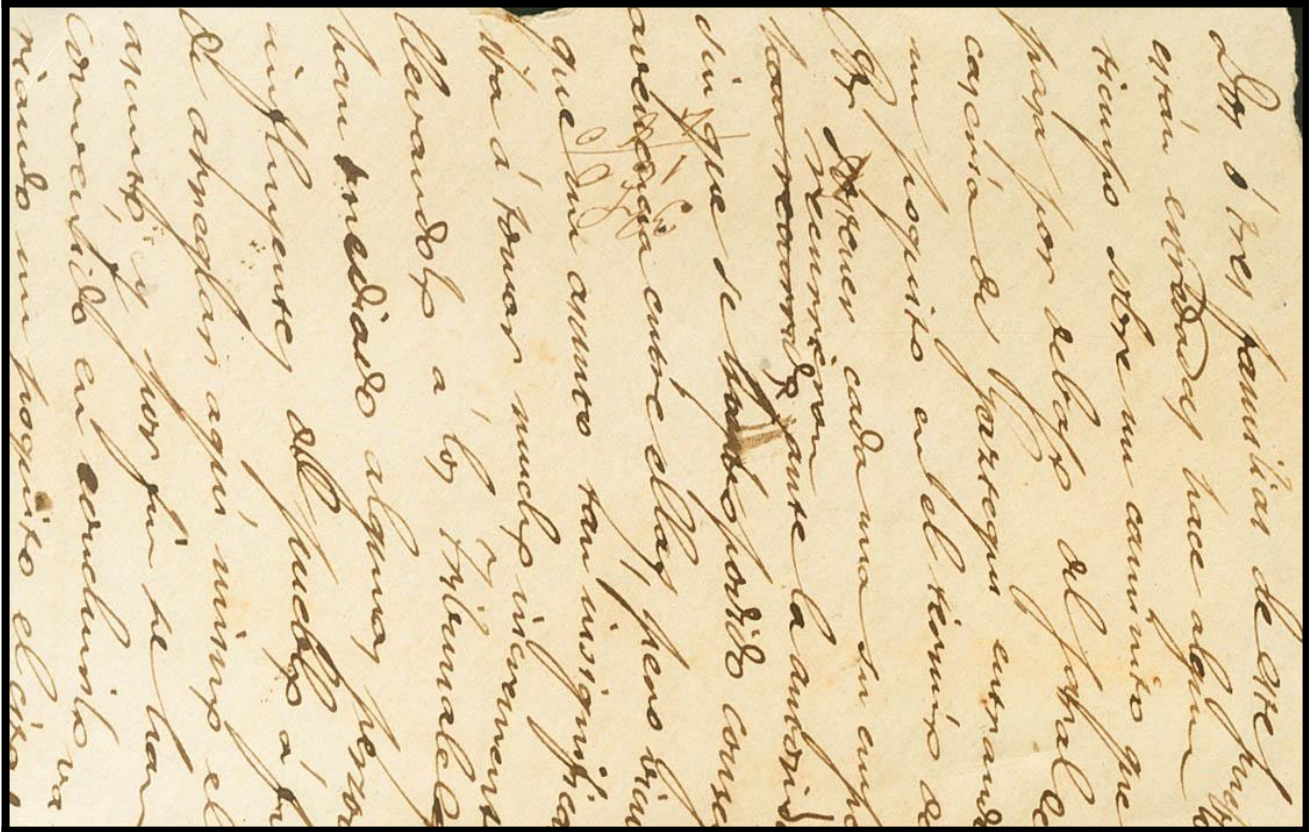 Dos ó tres familias de este pueb
están enredadas hace algun
tiempo sobre un caminito que
pasa por debajo del de
casería de entrando
un poquito en el término de
tener cada una su
recurrieron
han recurrido ante la autorid
sin que se podido conse
avenencia entre ellas, pero vien
que un asunto tan insignifica
iba á tomar mucho incremento
llevandolo a los tribunales
han mediado algunas perso
influyentes del pueblo á fi
de arreglar aquí mismo el
asunto, y por fin se han
convenido en concluirlo va
riando un poquito el cita